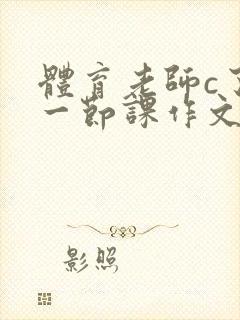 體育老師c
一節課作文
影照